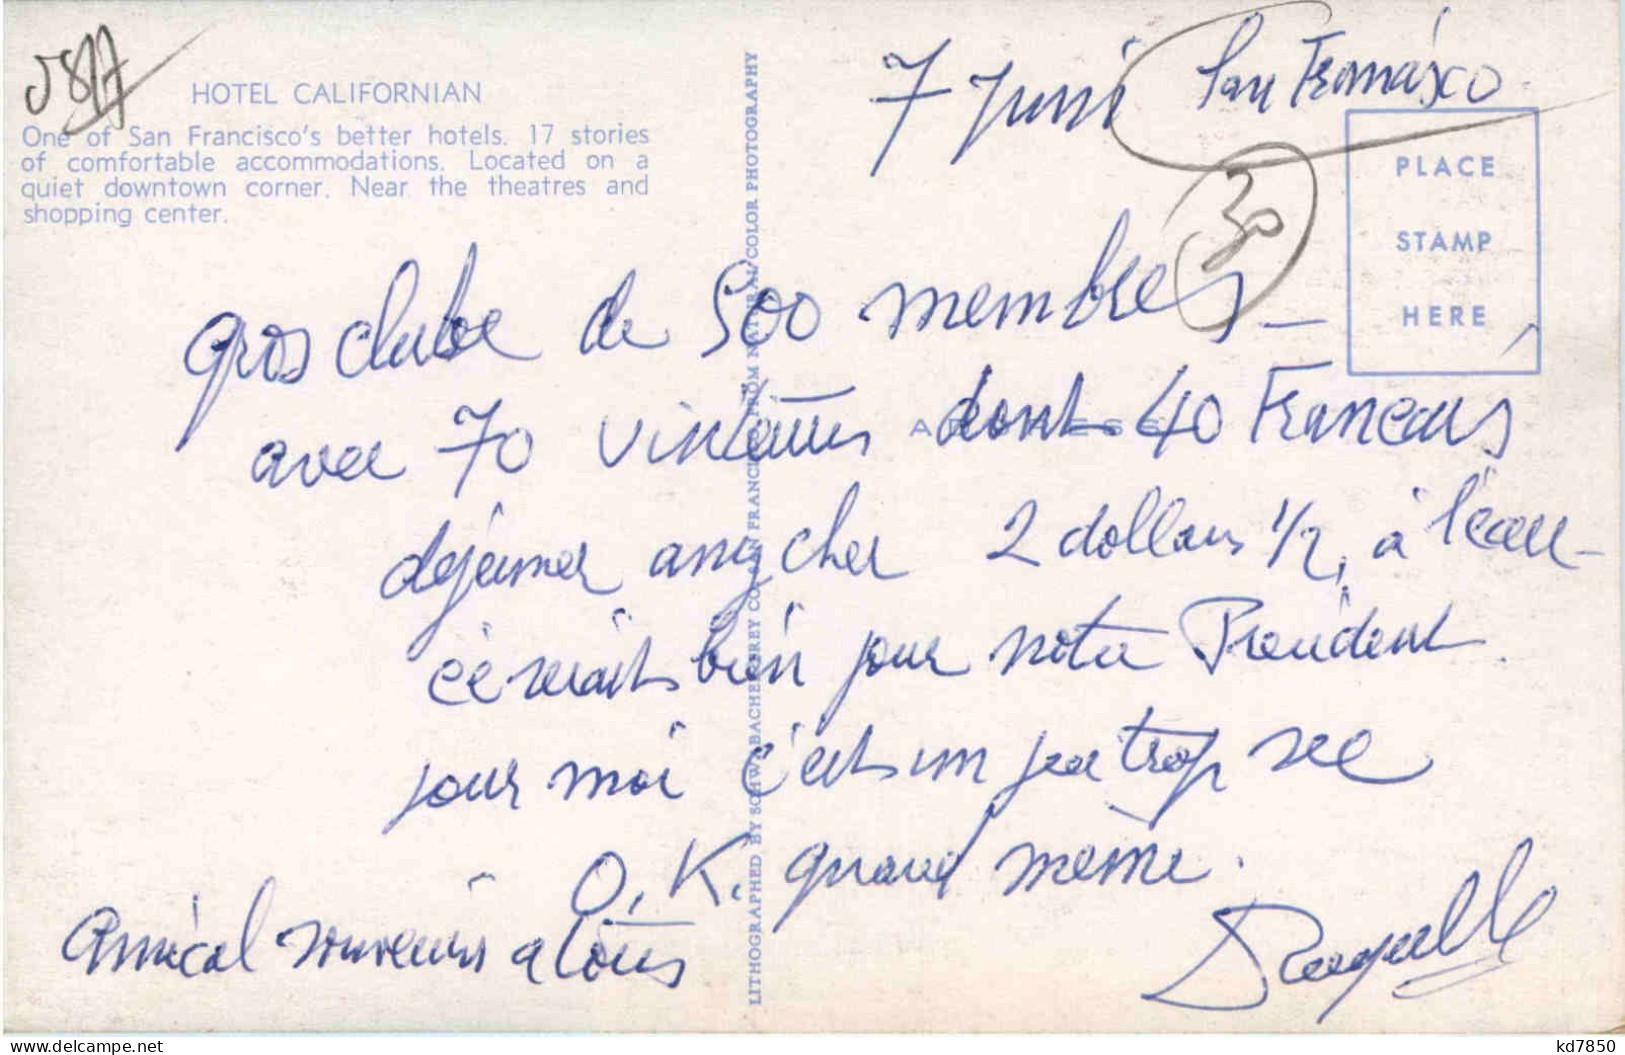 HOTEL CALIFORNIAN
One of San Francisco's better hotels. 17 stories
of comfortable accommodations. Located on a
quiet downtown corner. Near the theatres and
shopping center.
LITHOGRAPHED BY SCHWABACHER-FREY CO., SAN FRANCISCO FROM NATURAL COLOR PHOTOGRAPHY
7 Juni San Francisco
30
PLACE
STAMP
HERE
ADDRESS
gros clube de 500 membres –
avec 70 visiteurs dont 40 Francais
dejeuner assez cher 2 dollars 1/2, à l'eau –
ce serait bien pour notre President
pour moi c'est un peu trop sec
O.K. quand meme.
Amical souvenirs a tous
kd7850